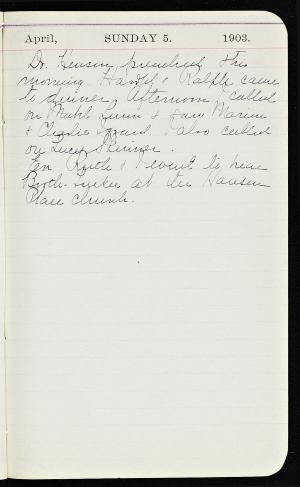 April, SUNDAY 5. 1903.
Dr. Henson preached this
morning. Harold & Ralph came
to dinner, Afternoon I called
on Mabl Gunn & saw Marion
& Charlie Spaul. I also called
on Lucy Skinner.
Ev Ruth & I went to hear
Byth. at the Hanson
Place Church.